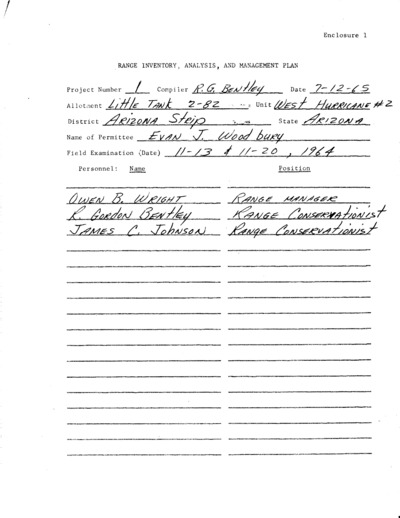 Enclosure 1
RANGE INVENTORY, ANALYSIS, AND MANAGEMENT PLAN
Project Number 1 Compiler R.G. Bentley Date 7-12-65
Allotment Little Tank 2-82 Unit West Hurricane #2
District Arizona Strip State Arizona
Name of Permittee Evan J. Woodbury
Field Examination (Date) 11-13 & 11-20, 1964
Personnel: Name Position
Owen B. Wright Range Manager
R. Gordon Bentley Range Conservationist
James C. Johnson Range Conservationist